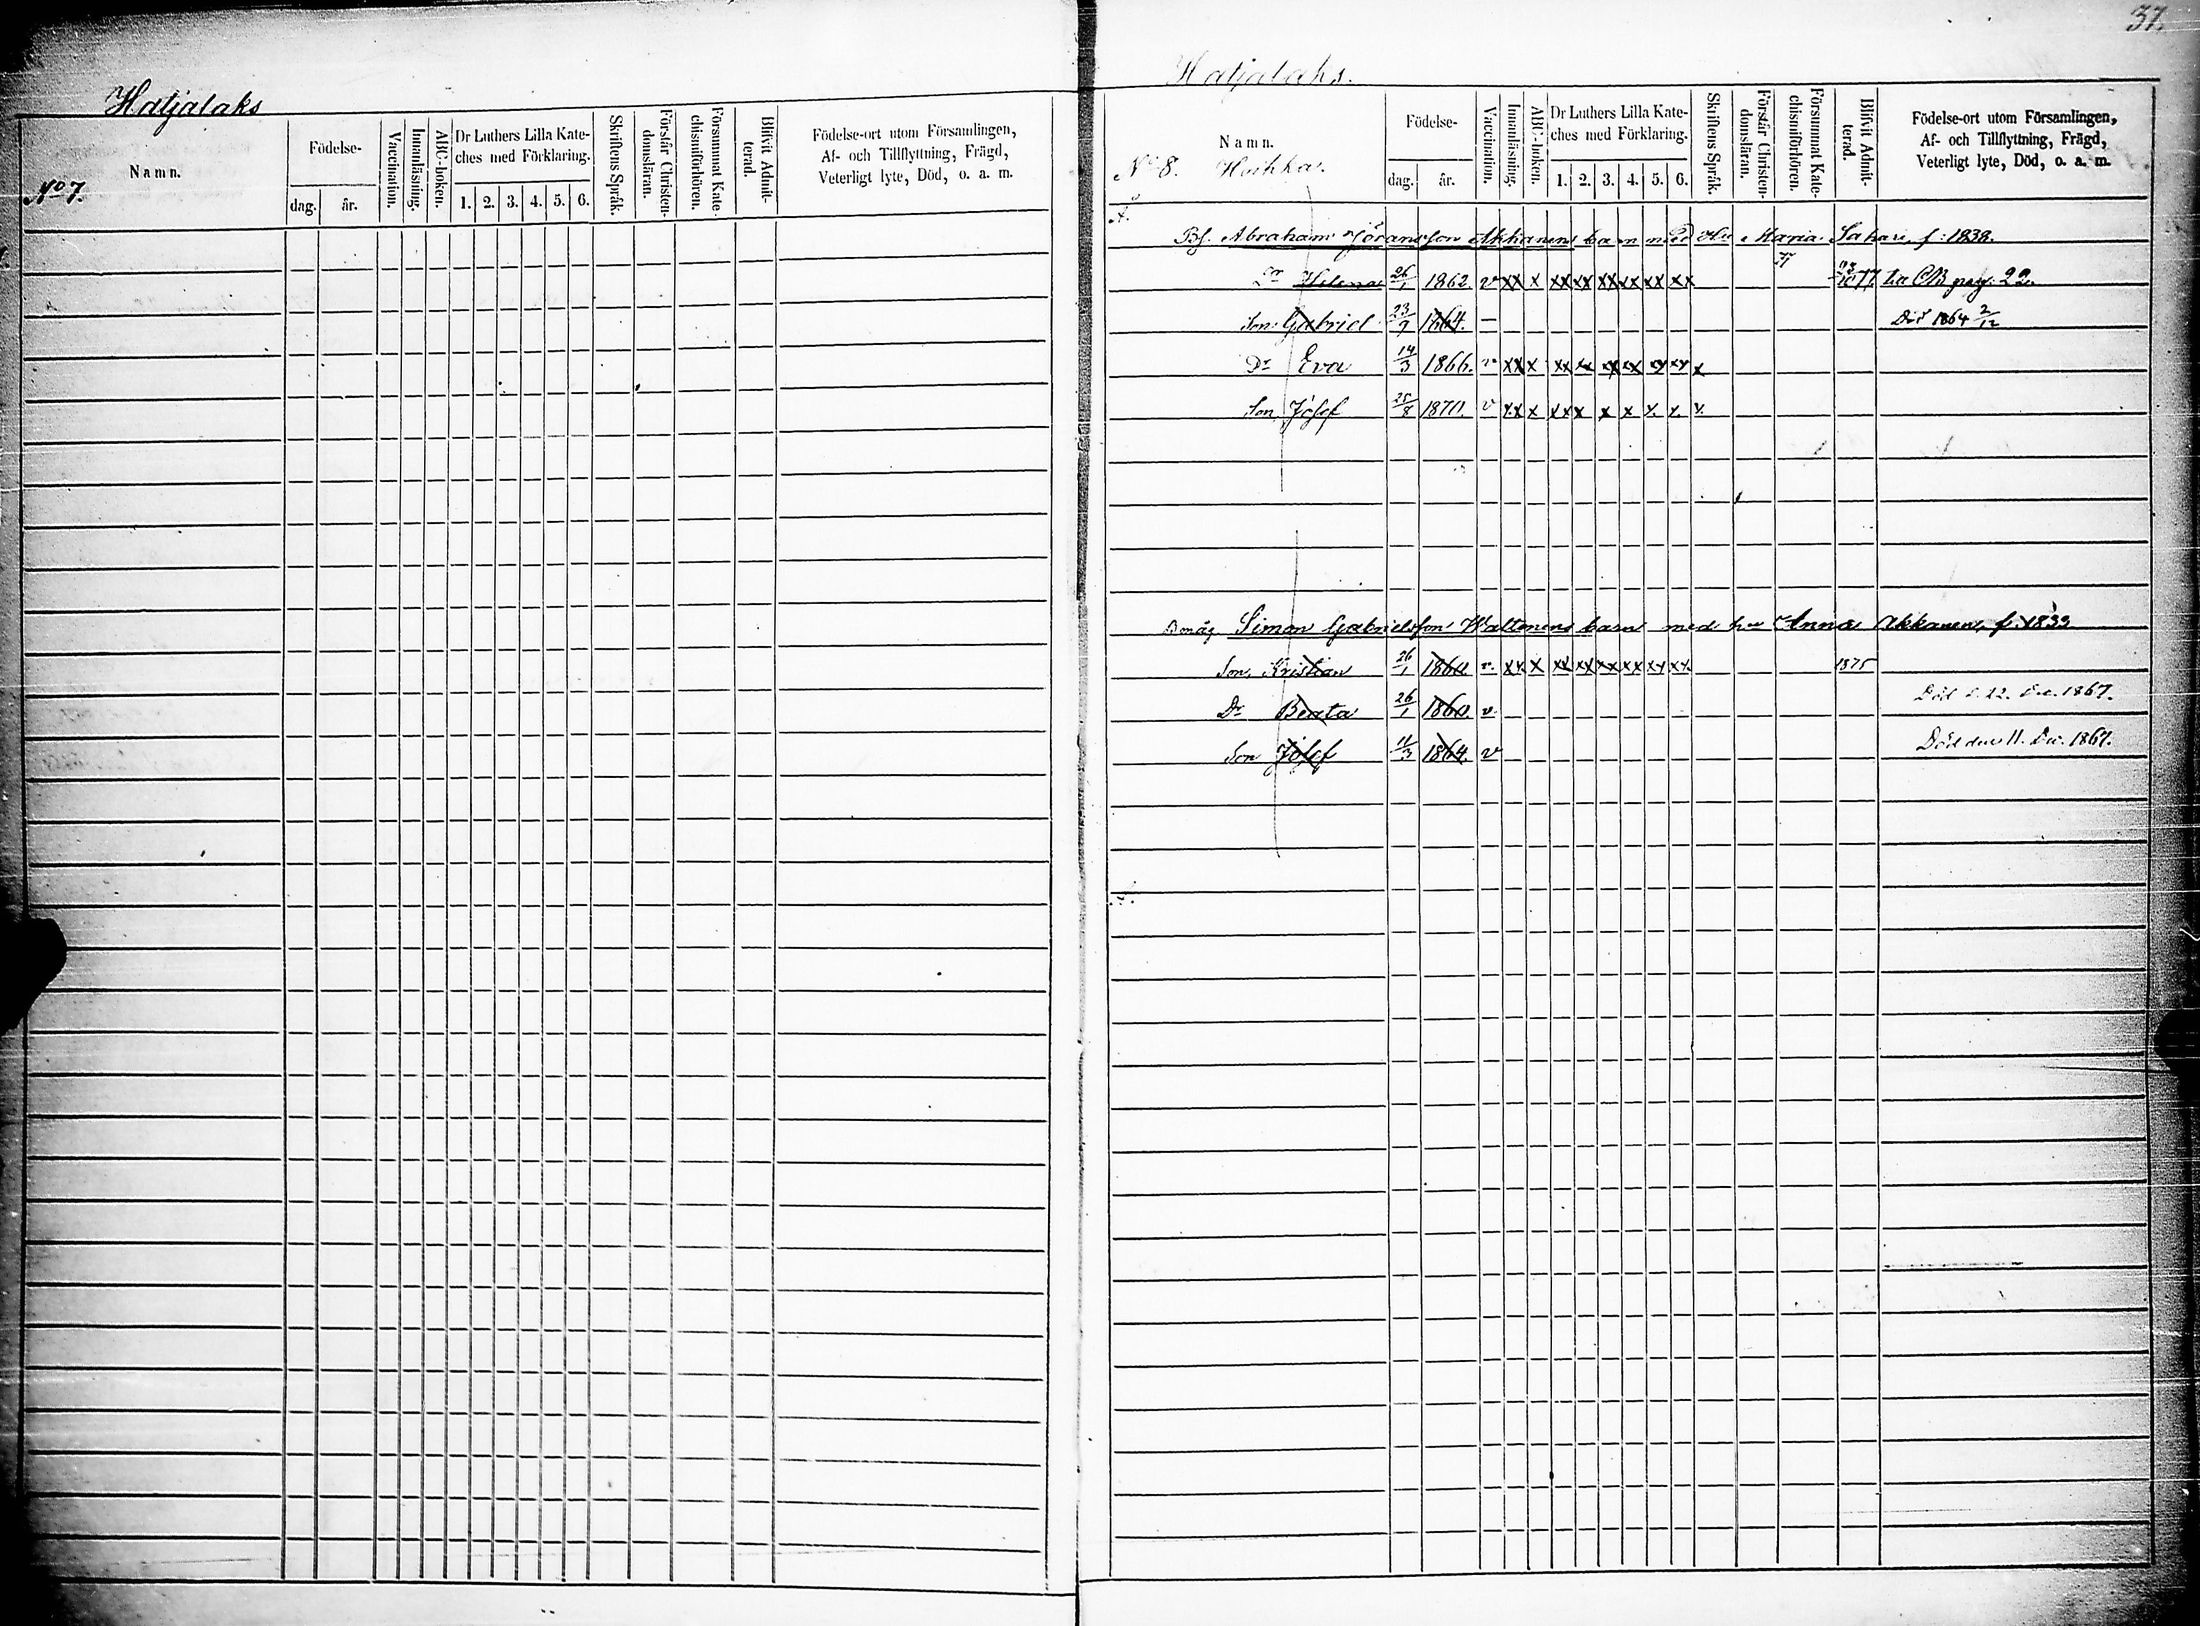 37.
Hatjalaks
Namn.
No 7.
Födelse-
dag.
år.
Vaccination.
Innanläsning.
ABC-boken.
Dr Luthers Lilla Kate-
ches med Förklaring.
1. 2. 3. 4. 5. 6.
Skriftens Språk.
Förstår Christen-
domsläran.
Försummat Kate-
chismiförhören.
Blifvit Admit-
terad.
Födelse-ort utom Församlingen,
Af- och Tillflyttning, Frägd,
Veterligt lyte, Död, o. a. m.
Hatjalaks.
Namn.
No 8. Huikka.
Födelse-
dag.
år.
Vaccination.
Innanläsning.
ABC-boken.
Dr Luthers Lilla Kate-
ches med Förklaring.
1. 2. 3. 4. 5. 6.
Skriftens Språk.
Förstår Christen-
domsläran.
Försummat Kate-
chismiförhören.
Blifvit Admit-
terad.
Födelse-ort utom Församlingen,
Af- och Tillflyttning, Frägd,
Veterligt lyte, Död, o. a. m.
Abraham Göransson Akkanens barn med Hu Maria Sakari f: 1838.
Dr Helena 26/1 1862. v xx x xx xx xx xx xx xx 77 till CB pag. 22.
Son Gabriel 23/9 1864. — Död 1864 2/12
Dr Eva 14/3 1866. v xx x xx xx xx xx xy xy x
Son Josef 25/8 1870. v xx x xx x x x x. x. v.
Simon Gabrielsson Waltonens barn med hu Anna Akkanen, f. 1833
Son, Kristian 26/1 1860 v. xx x xx xx xx xx xy xx 1875
Dr Beata 26/1 1860. v. Död d. 22. Dec. 1867.
Son Josef 11/3 1864. v Död den 11. Dec. 1867.